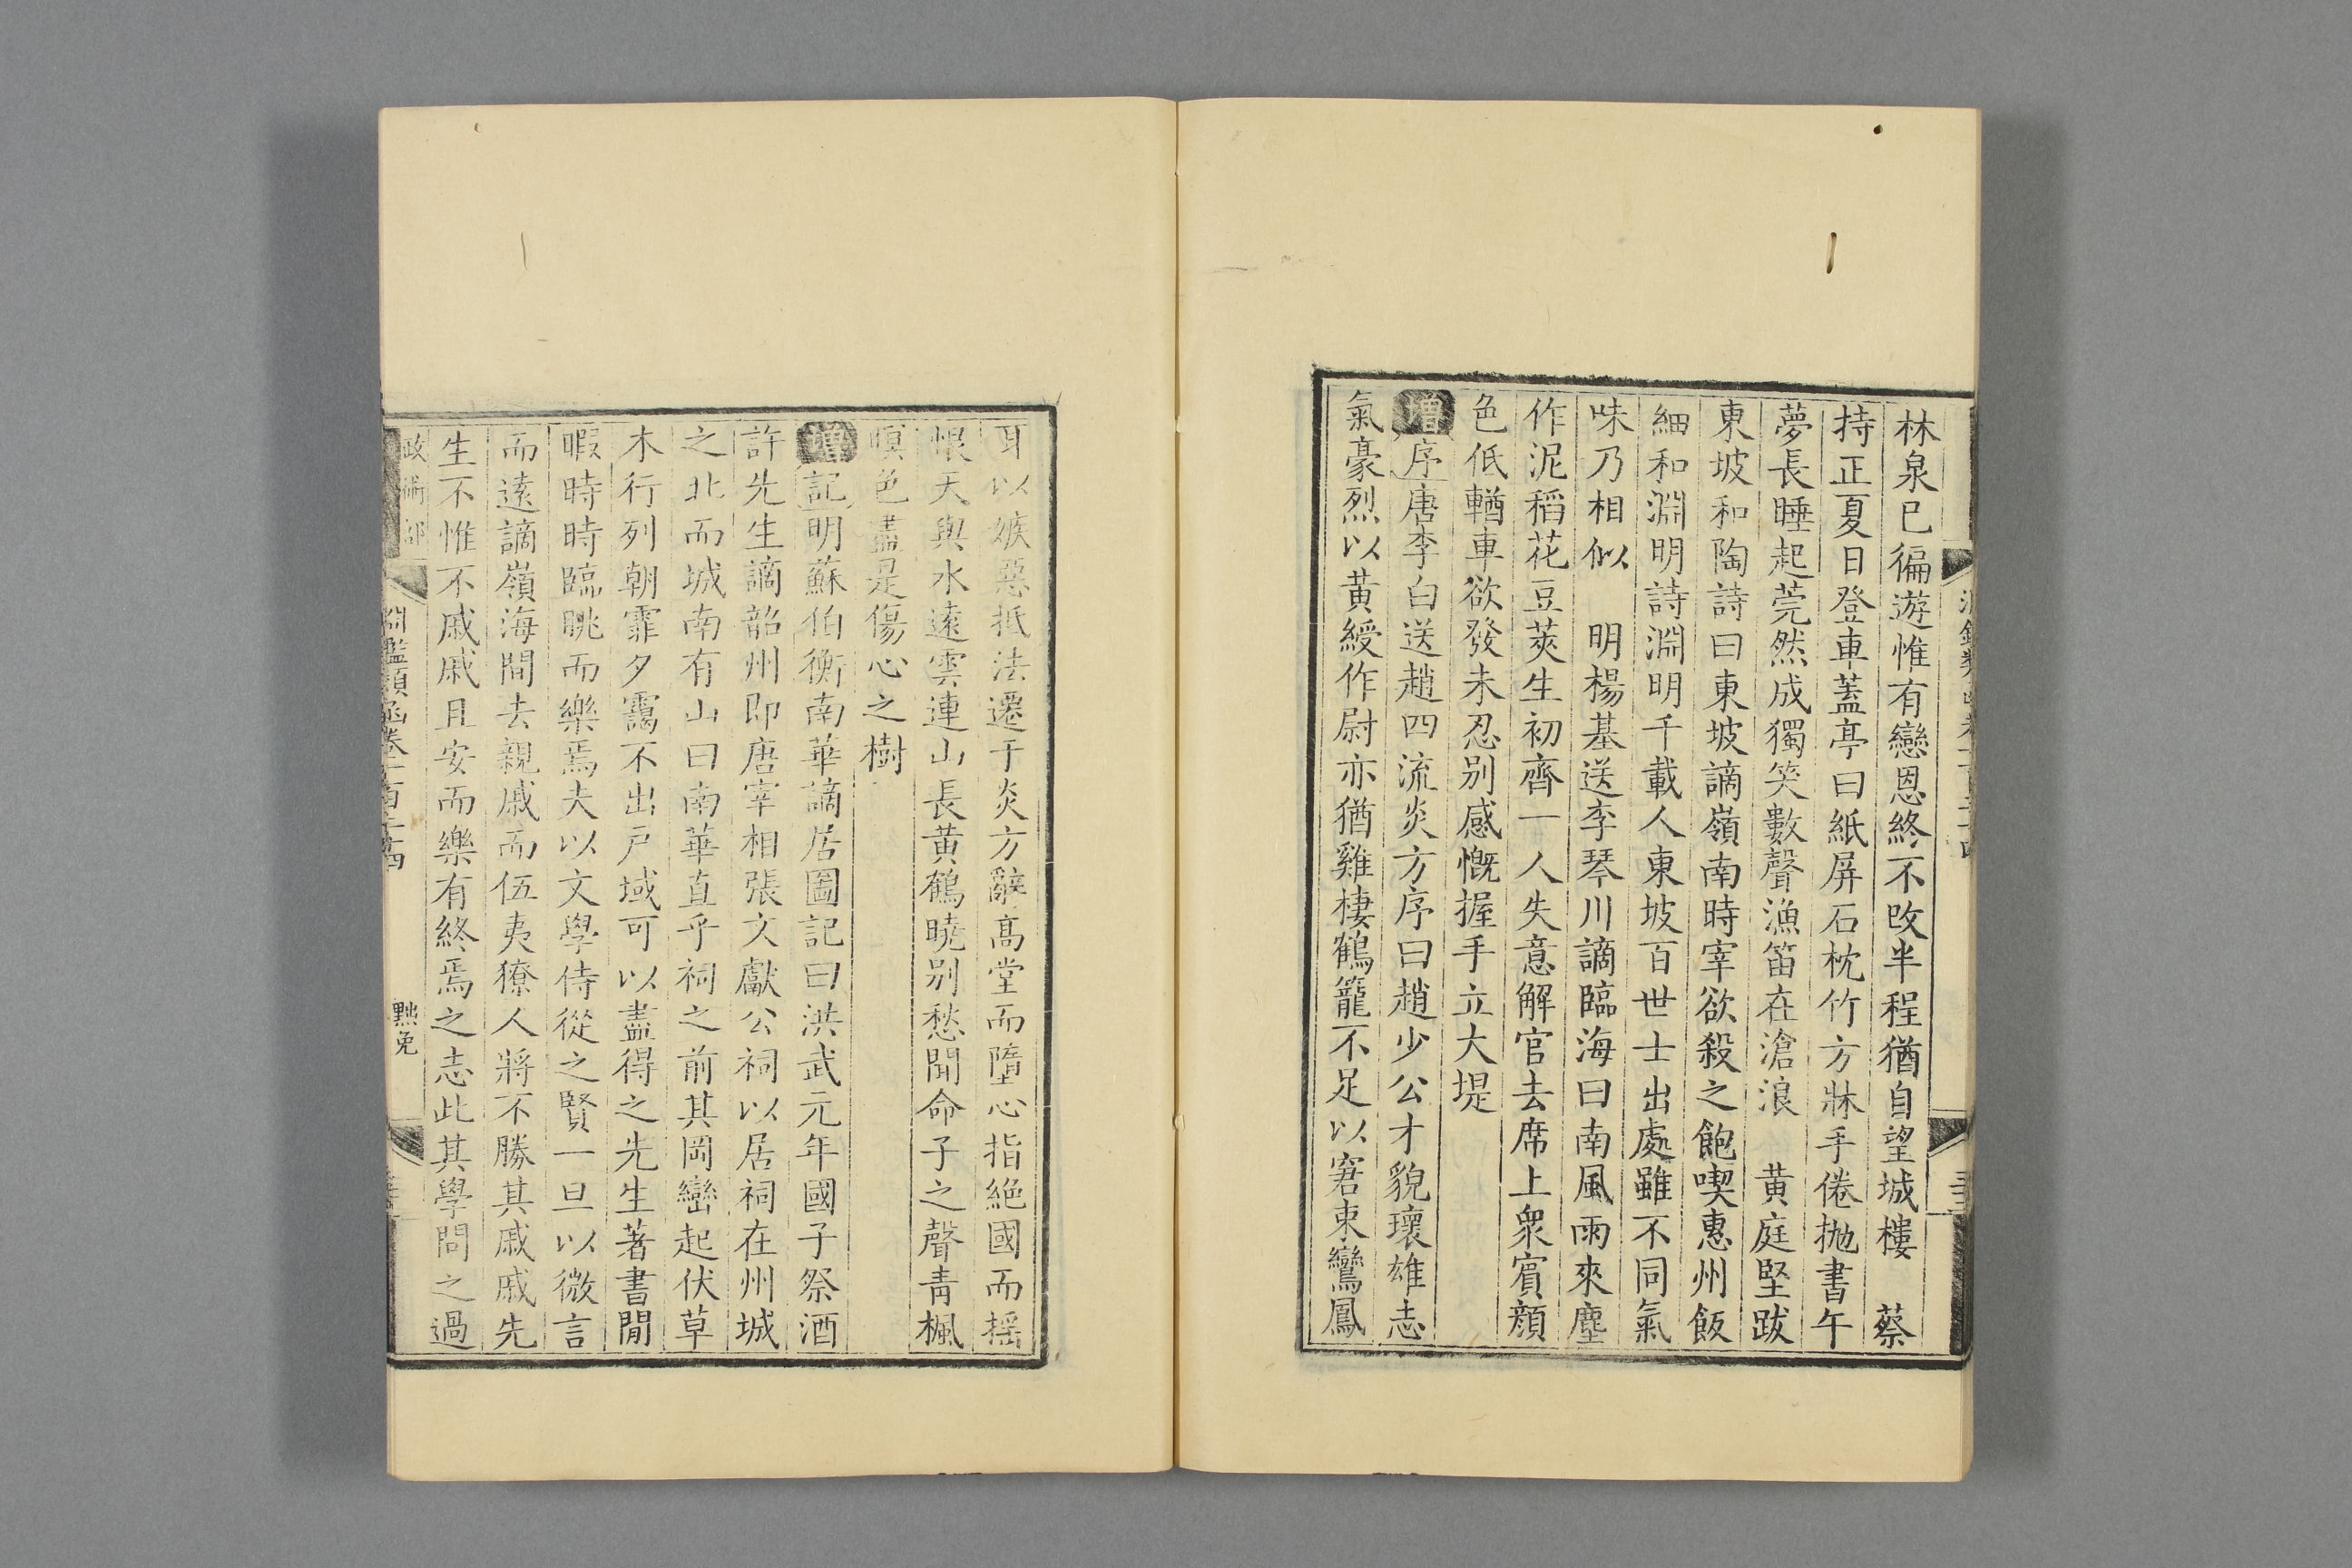 林泉已徧遊惟有戀恩終不改半程猶自望城樓　蔡
持正夏日登車蓋亭曰紙屏石枕竹方牀手倦抛書午
夢長睡起莞然成獨笑數聲漁笛在滄浪　黄庭堅跋
東坡和陶詩曰東坡謫嶺南時宰欲殺之飽喫惠州飯
細和淵明詩淵明千載人東坡百世士出處雖不同氣
味乃相似　明楊基送李琴川謫臨海曰南風雨來塵
作泥稻花豆莢生初齊一人失意解官去席上衆賓顔
色低輶車欲發未忍别感慨握手立大堤
增序唐李白送趙四流炎方序曰趙少公才貌瓌雄志
氣豪烈以黄綬作尉亦猶雞棲鶴籠不足以窘束鸞鳳
耳以嫉惡抵法遷于炎方辭高堂而墮心指絶國而揺
恨天與水遠雲連山長黄鶴曉别愁聞命子之聲青楓
暝色盡是傷心之樹
增記明蘇伯衡南華謫居圖記曰洪武元年國子祭酒
許先生謫韶州即唐宰相張文獻公祠以居祠在州城
之北而城南有山曰南華直乎祠之前其岡巒起伏草
木行列朝霏夕靄不出戸域可以盡得之先生著書閒
暇時時臨眺而樂焉夫以文學侍從之賢一旦以微言
而遠謫嶺海間去親戚而伍夷獠人將不勝其戚戚先
生不惟不戚戚且安而樂有終焉之志此其學問之過
政術部　淵鑑類函卷一百二十四　黜免